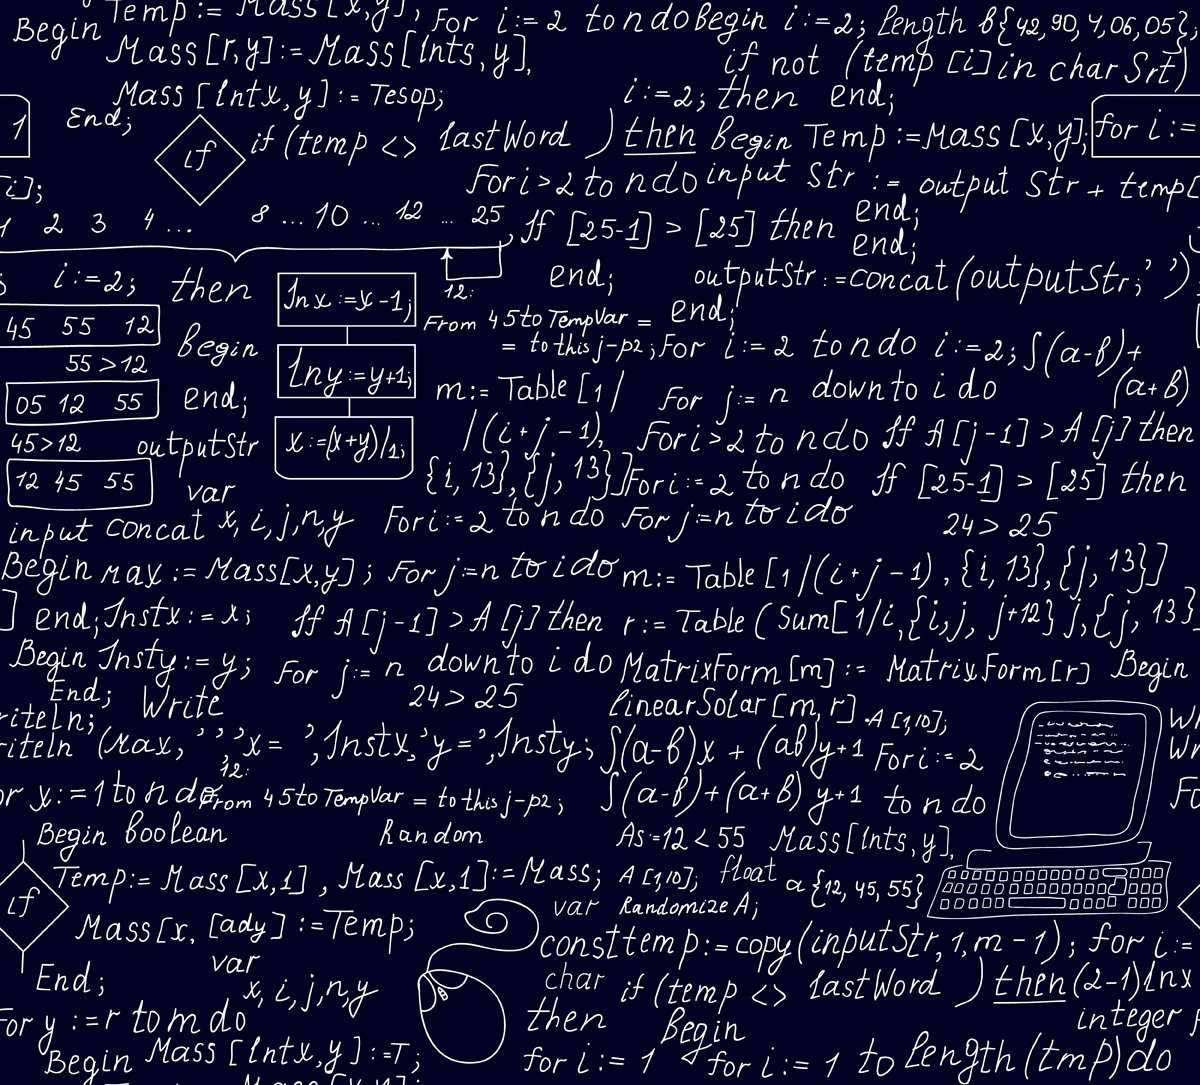 Begin Temp := Mass [x,y], For i := 2 to n do Begin i := 2; length b{42, 90, 7, 06, 05};
Mass [r,y] := Mass [Ints, y], if not (temp [i] in char Srt)
Mass [Intx, y] := Tesop; i := 2; then end;
1 End; if if (temp <> lastWord ) then Begin Temp := Mass [x,y]; for i :=
For i > 2 to n do input Str := output Str + temp[
[i];
1 2 3 4 ... 8 ... 10 ... 12 ... 25, If [25-1] > [25] then end;
end;
i := 2; then end; outputStr := concat (outputStr; ' ')
12:
Inx := x-1; From 45 to TempVar = end;
45 55 12 begin = to this j-p2; For i := 2 to n do i := 2; ∫(a-b)+
55 > 12 Iny := y+1; m := Table [1/ For j := n down to i do (a+b)
05 12 55 end;
45 > 12 outputStr x := (x+y)/1; /(i+j-1), For i > 2 to n do If A [j-1] > A [j] then
12 45 55 var {i, 13}, {j, 13}] For i := 2 to n do If [25-1] > [25] then
input concat x, i, j, n, y For i := 2 to n do For j := n to i do 24 > 25
Begin max := Mass[x,y]; For j := n to i do m := Table [1/(i+j-1), {i, 13}, {j, 13}]
] end; Instx := x; If A [j-1] > A [j] then r := Table (Sum[1/i, {i, j, j+12} j, {j, 13}
Begin Insty := y; For j := n down to i do MatrixForm [m] := MatrixForm [r] Begin
End; Write 24 > 25 linearSolar [m, r] A [1,10];
riteln;
riteln (max, ' ', 'x = ', Instx, 'y = ', Insty; ∫(a-b)x + (ab)y+1 For i := 2
12:
or y := 1 to n do From 45 to TempVar = to this j-p2; ∫(a-b)+(a+b) y+1 to n do Fo
Begin boolean Random As := 12 < 55 Mass [Ints, y],
if Temp := Mass [x,1], Mass [x,1] := Mass; A [1,10]; float a {12, 45, 55}
var Randomize A;
Mass [x, [ady] := Temp; const temp := copy (inputStr, 1, m - 1); for i :=
End; var char if (temp <> lastWord ) then (2-1) lnx
x, i, j, n, y
For y := r to m do then Begin integer
Begin Mass [Intx, y] := T; for i := 1 for i := 1 to length (tmp) do